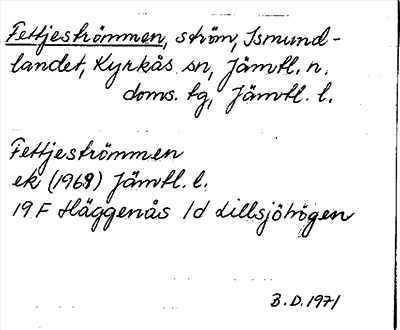 Fettjeströmmen, ström, Ismund-
landet, Kyrkås sn, Jämtl. n.
doms. tg, Jämtl. l.
Fettjeströmmen
ek (1968) Jämtl. l.
19 F Häggenås 1d Lillsjöhögen
B.D. 1971